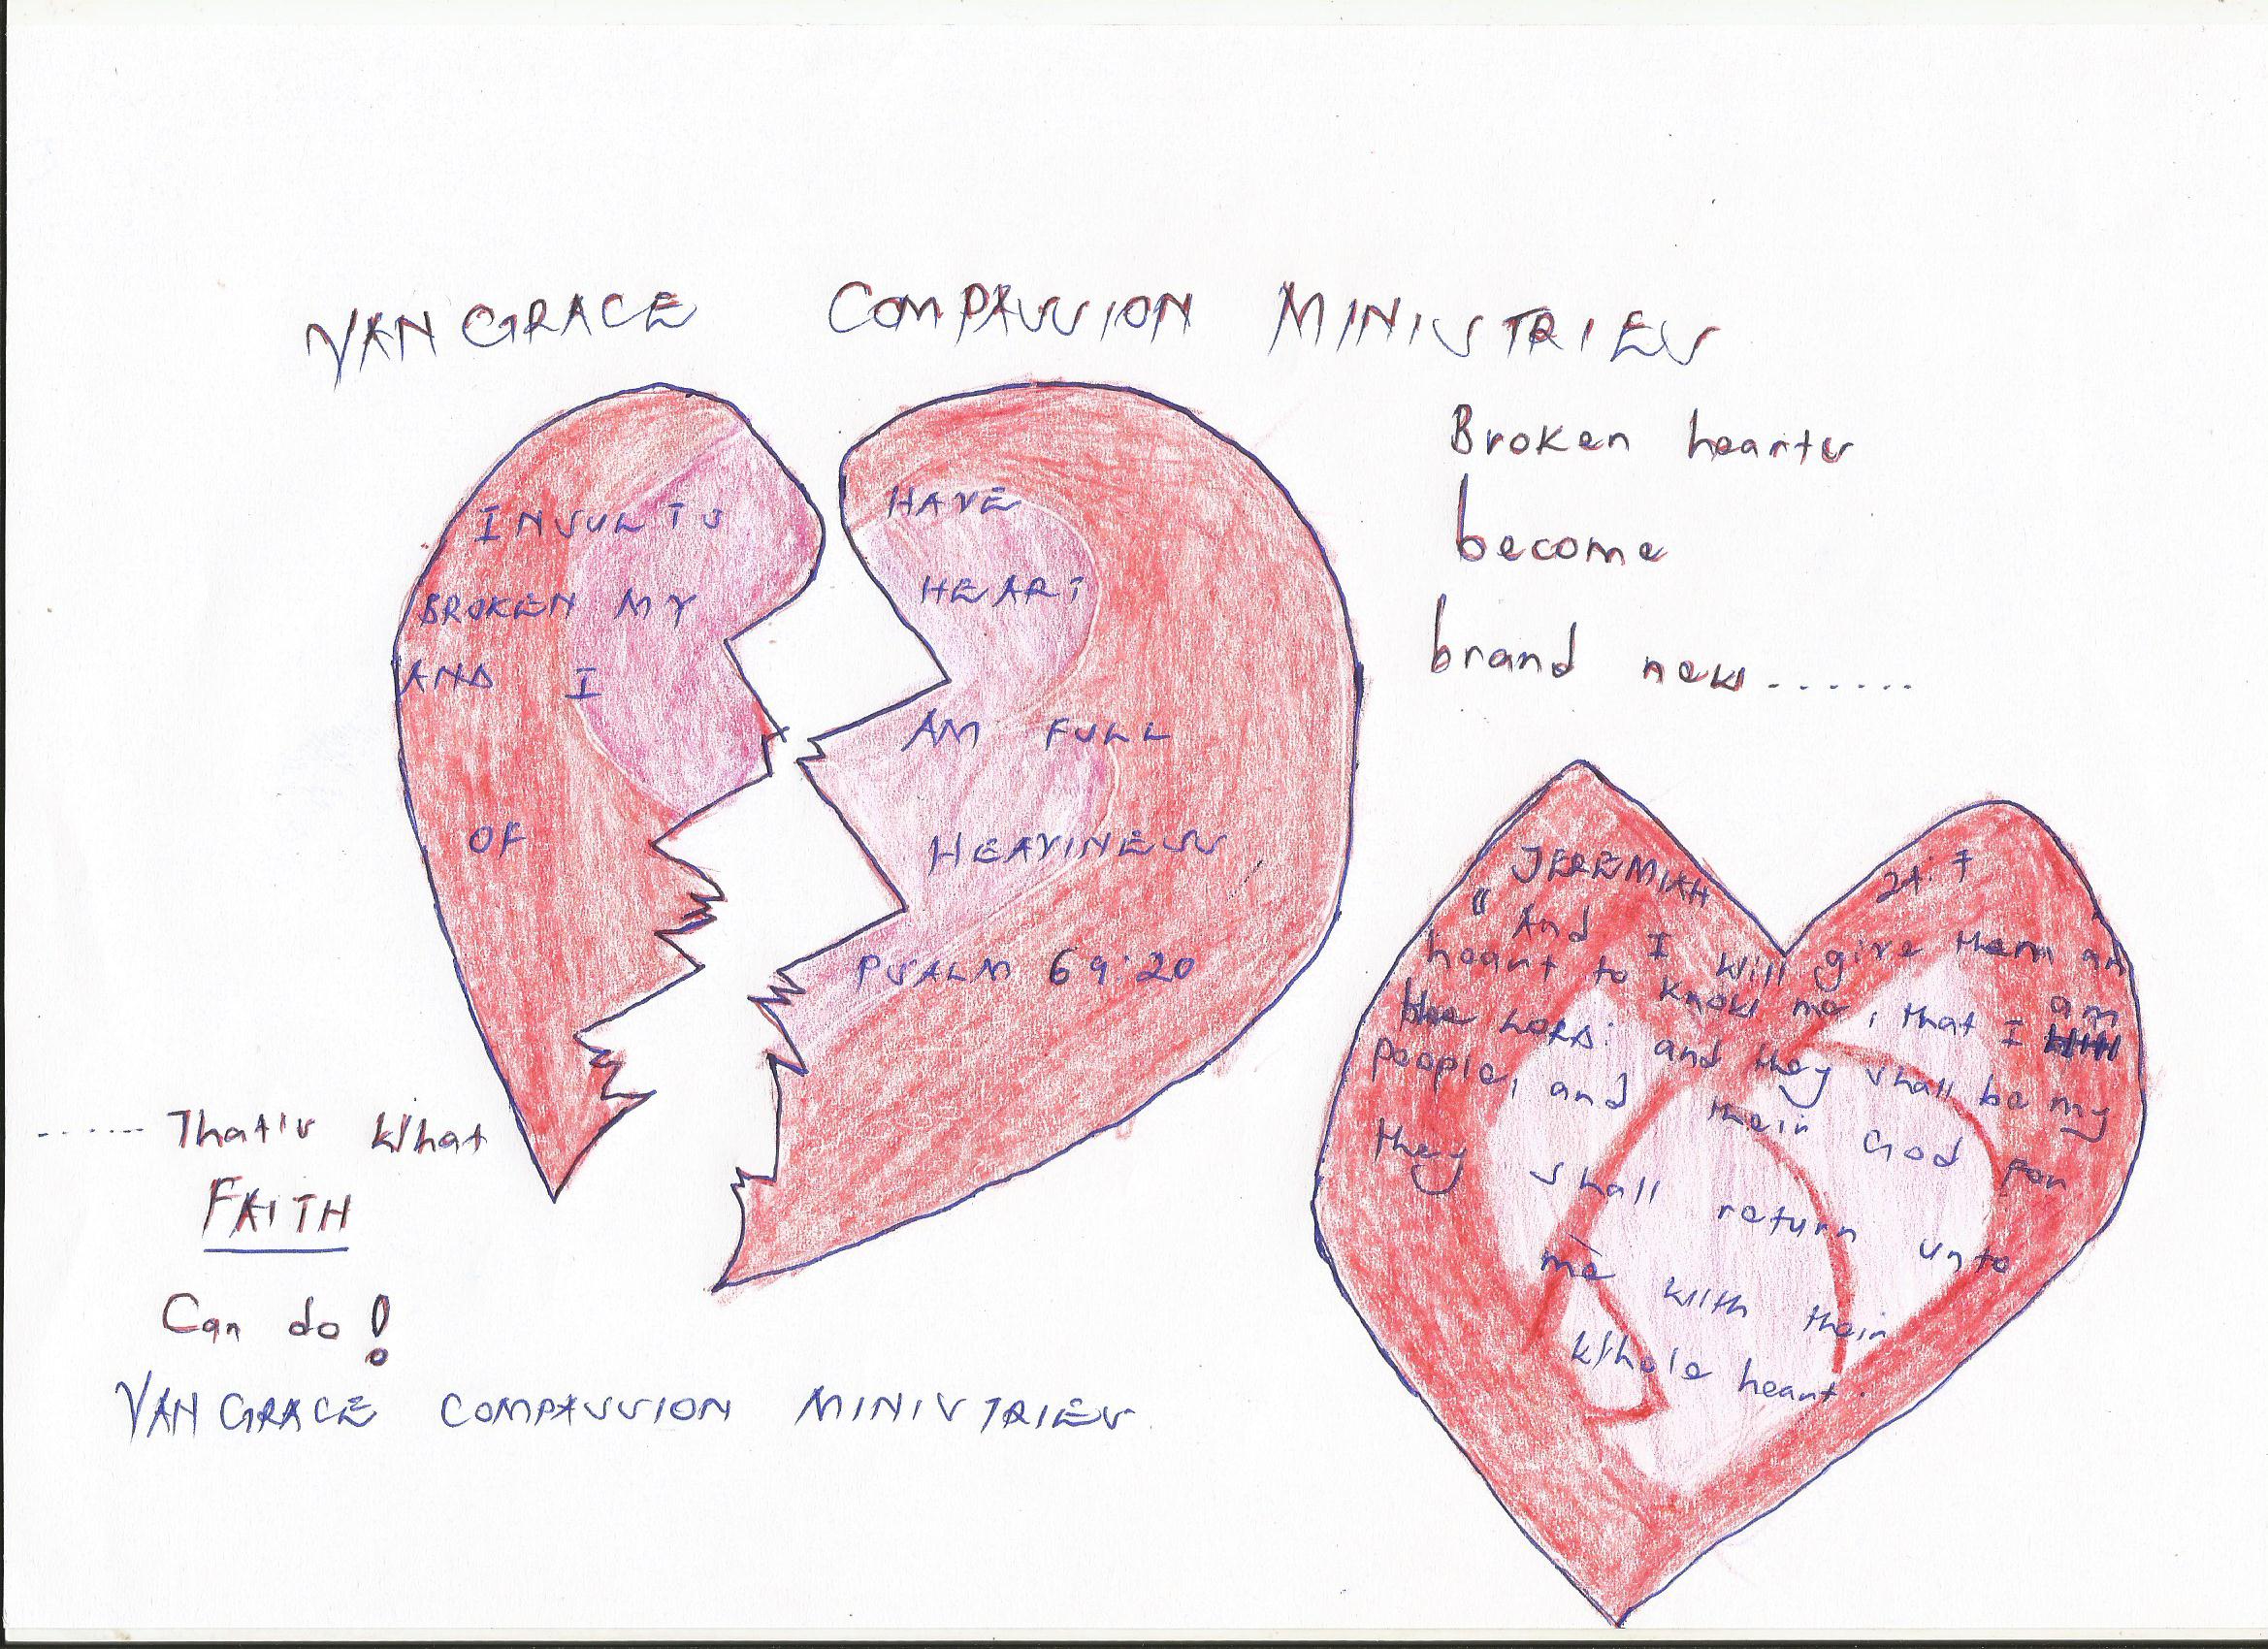 VAN GRACE COMPASSION MINISTRIES
Broken hearts
become
brand new.......
INSULTS HAVE
BROKEN MY HEART
AND I AM FULL
OF HEAVINESS
PSALM 69:20
JEREMIAH 24:7
"And I will give them an
heart to know me, that I am
the LORD: and they shall be my
people, and their God for
they shall return unto
me with their
whole heart.
......That's What
FAITH
Can do!
VAN GRACE COMPASSION MINISTRIES